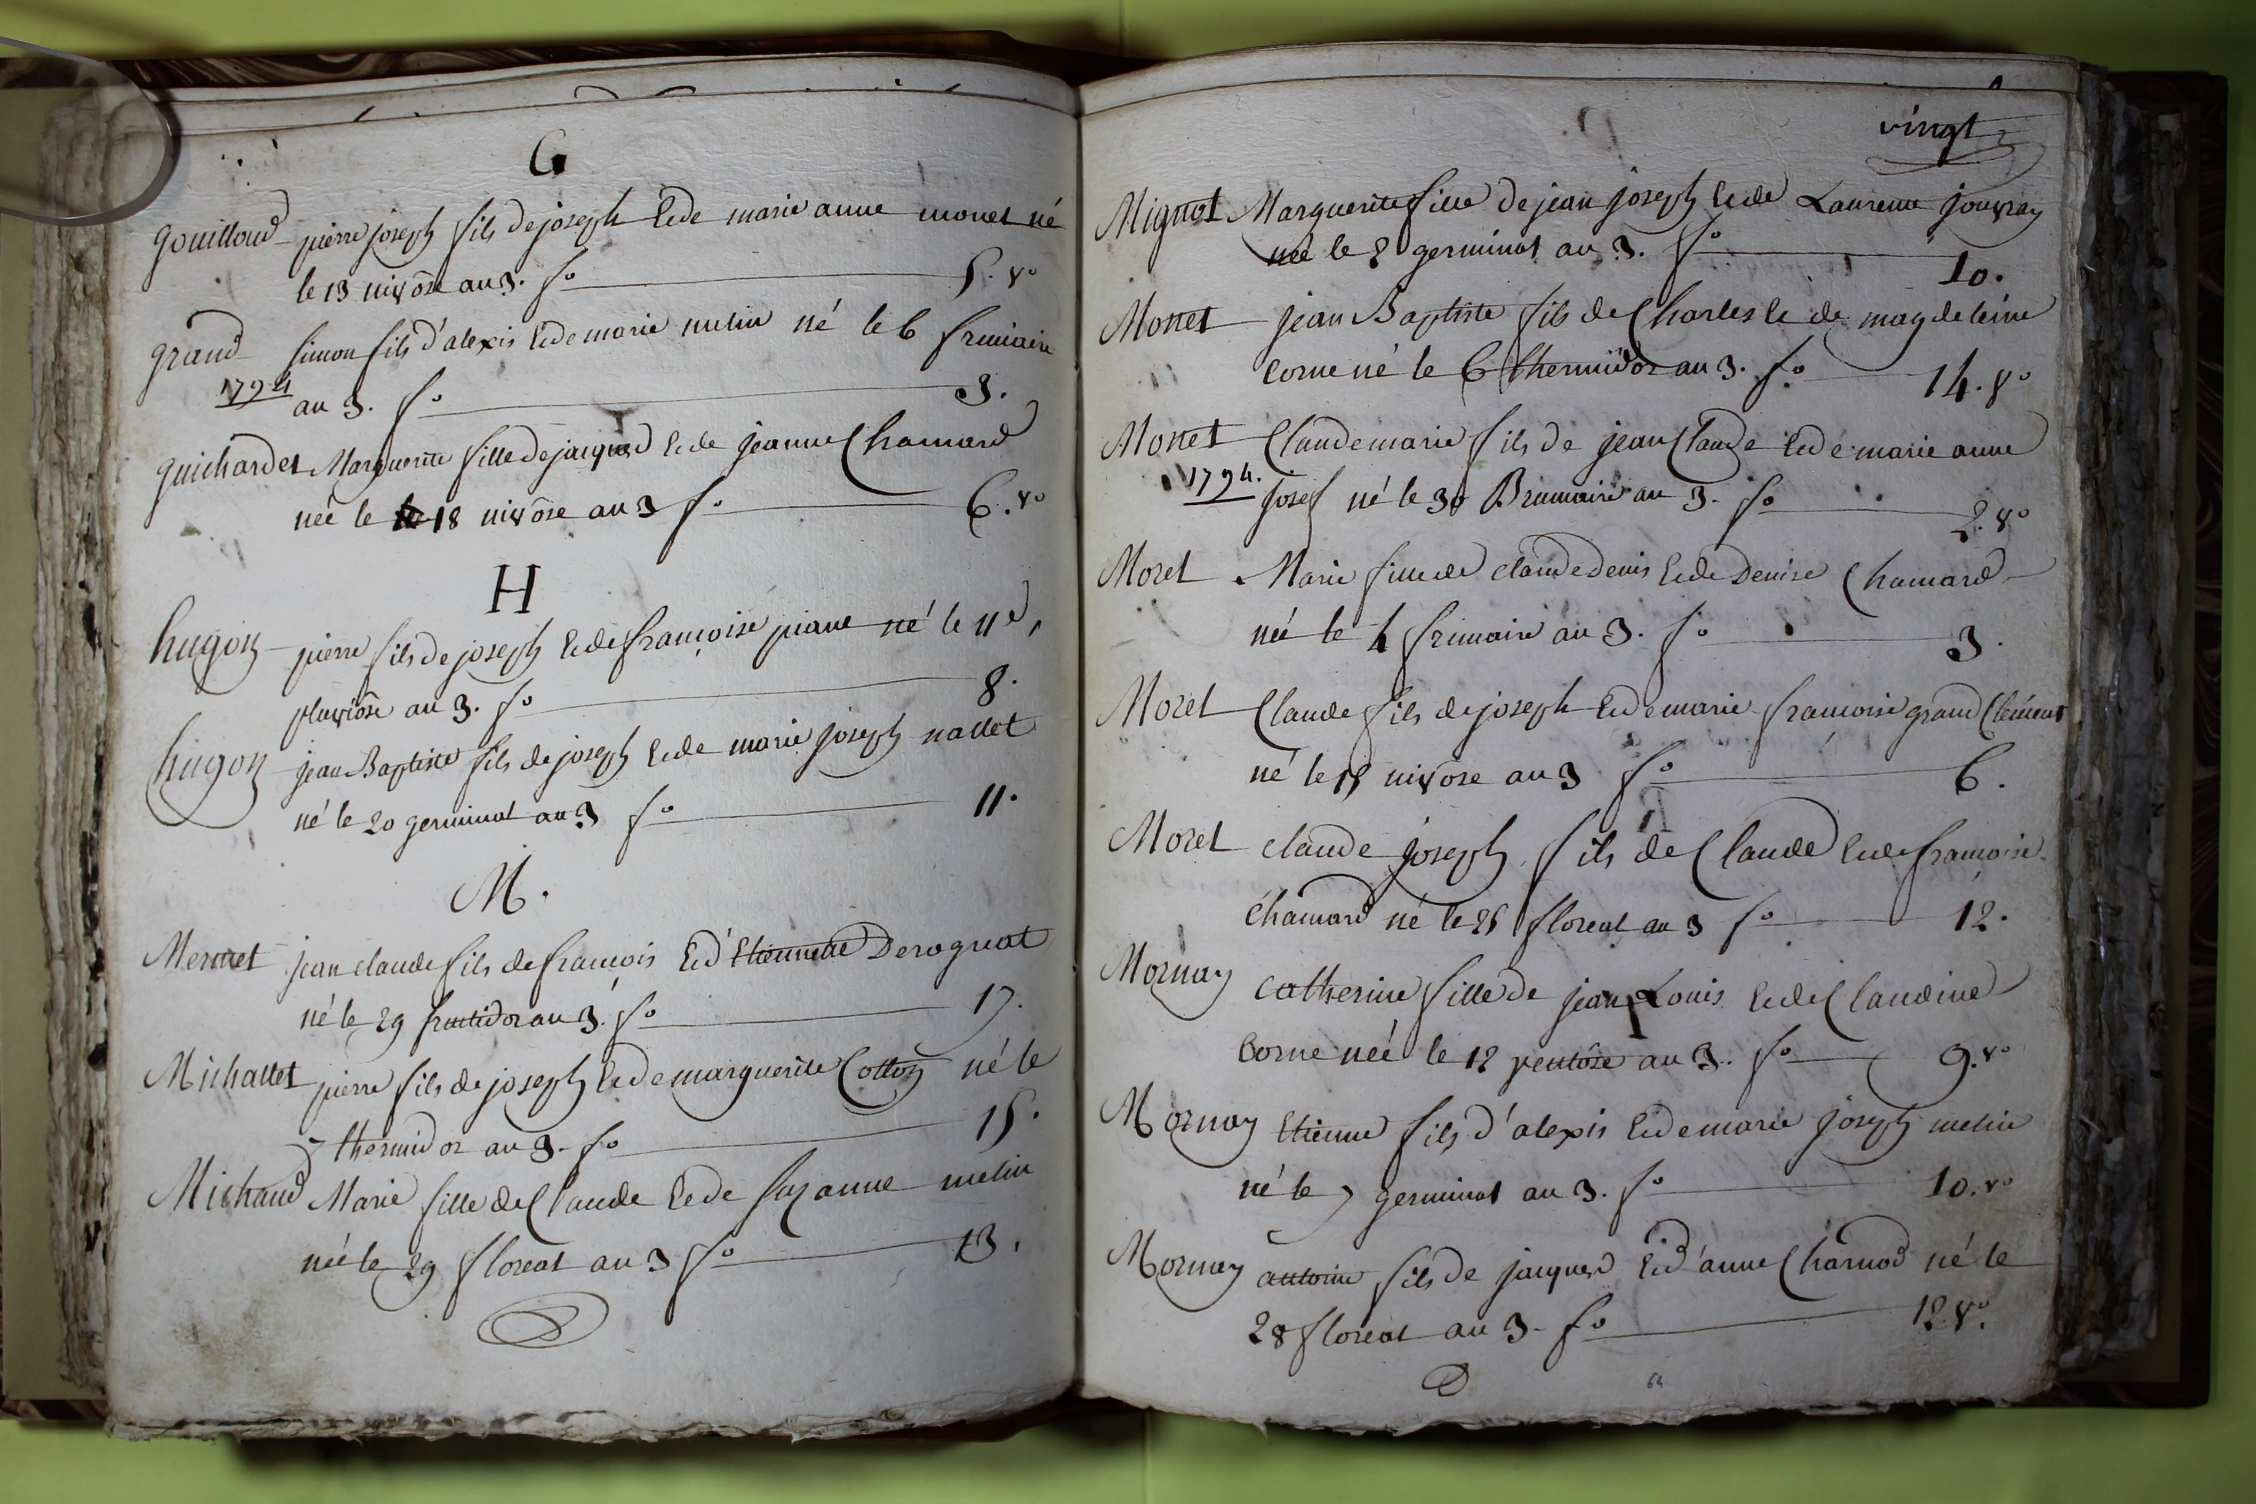 G
gouilloud pierre joseph fils de joseph et de marie anne monet né
le 13 nivôse an 3. fo 5. vo
grand simon fils d'alexis et de marie melin né le 6 frimaire
1794 an 3. fo 3.
guichardet Marguerite fille de jacques et de jeanne Chamard
née le 18 nivôse an 3 fo 6. vo
H
hugon pierre fils de joseph et de françoise piane né le 11e
pluviôse an 3. fo 8.
hugon jean Baptiste fils de joseph et de marie joseph nallet
né le 20 germinal an 3 fo 11.
M.
Mermet jean claude fils de françois et d'Etiennette Derognat
né le 29 fructidor an 3. fo 17.
Michallet pierre fils de joseph et de marguerite Cotton né le
7 thermidor an 3. fo 15.
Michaud Marie fille de Claude et de suzanne melin
née le 29 floreal an 3 fo 13.
vingt
Mignot Marguerite fille de jean joseph et de Laurence jouvray
née le 2 germinal an 3. fo 10.
Monet jean Baptiste fils de Charles et de magdeleine
Corne né le 6 thermidor an 3. fo 14. vo
Monet Claude marie fils de jean Claude et de marie anne
1794. josef né le 30 Brumaire an 3. fo 2. vo
Morel Marie fille de claude denis et de Denise Chamard
née le 4 frimaire an 3. fo 3.
Morel Claude fils de joseph et de marie françoise grand Clément
né le 15 nivôse an 3 fo 6.
Morel claude joseph fils de Claude et de françoise
Chamard né le 25 floreal an 3 fo 12.
Mornay catherine fille de jean Louis et de Claudine
Corne née le 12 ventôse an 3. fo 9. vo
Mornay Etienne fils d'alexis et de marie joseph melin
né le 7 germinal an 3. fo 10. vo
Mornay antoine fils de jacques et d'anne Charnod né le
28 floreal an 3. fo 12 vo.
64